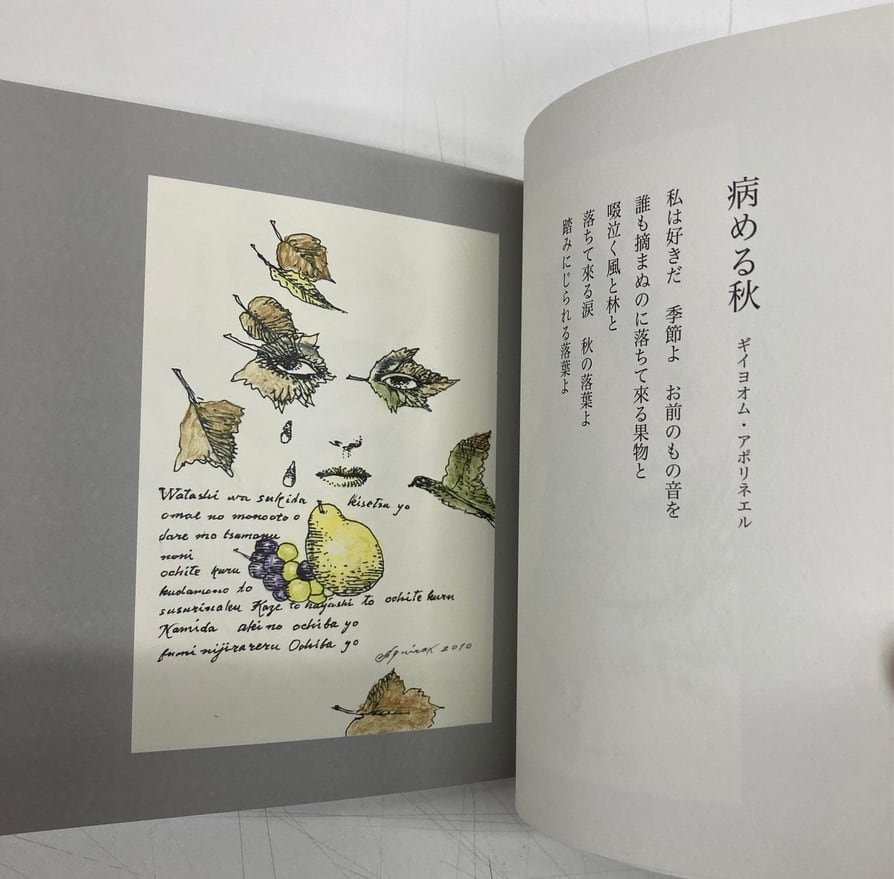 Watashi wa sukida kisetsu yo
omae no monooto o
dare mo tsumanu
noni
ochite kuru
kudamono to
susurinaku Kaze to hayashi to ochite kuru
Namida aki no ochiba yo
fumi nijirareru Ochiba yo
2010
病める秋
ギイヨオム・アポリネエル
私は好きだ 季節よ お前のもの音を
誰も摘まぬのに落ちて來る果物と
啜泣く風と林と
落ちて來る涙 秋の落葉よ
踏みにじられる落葉よ